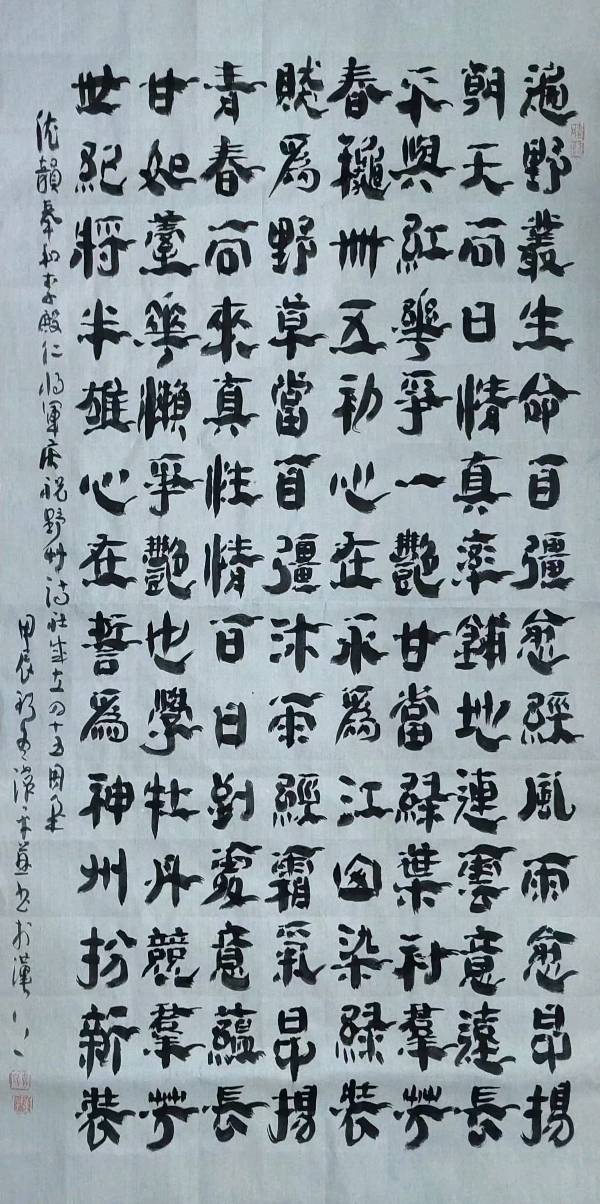 遍野叢生命自彊愈經風雨愈昂揚
朝天向日情真率鋪地連雲意遠長
不與紅華爭一艷甘當綠葉衬羣芳
春龝卌五初心在永爲江山染綠裝
賤爲野草當自彊沐雨經霜氣昂揚
青春向來真性情百日意蘊長
甘如薹華懶爭艷也學牡丹競羣芳
世紀將半雄心在誓爲神州扮新裝
依韻奉和李殿仁將軍慶祝野艸詩社成立四十五周年
甲辰初書於漢